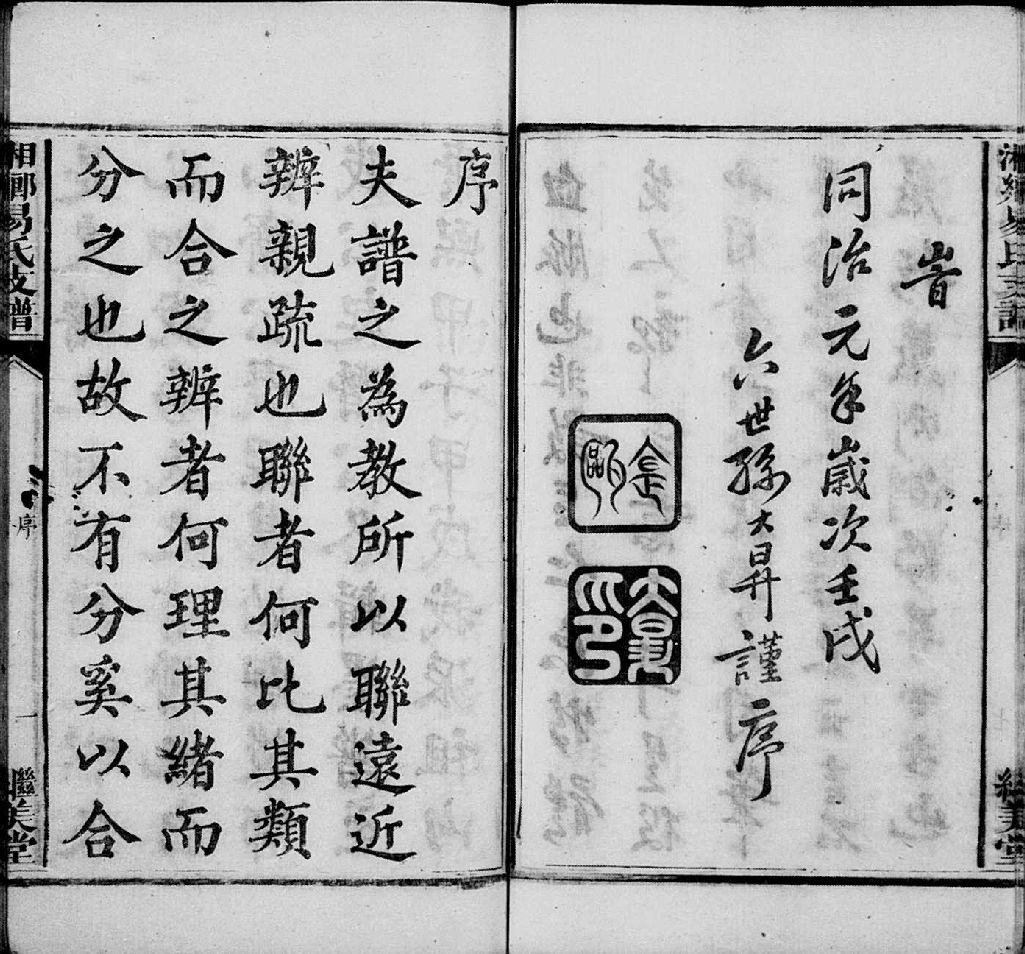 湘鄉易氏支譜
繼美堂
昔
同治元年歲次壬戌
六世孫大昇謹序
大昇
序
夫譜之為教所以聯遠近
辨親疏也聯者何比其類
而合之辨者何理其緒而
分之也故不有分奚以合
湘鄉易氏支譜
序
一
繼美堂